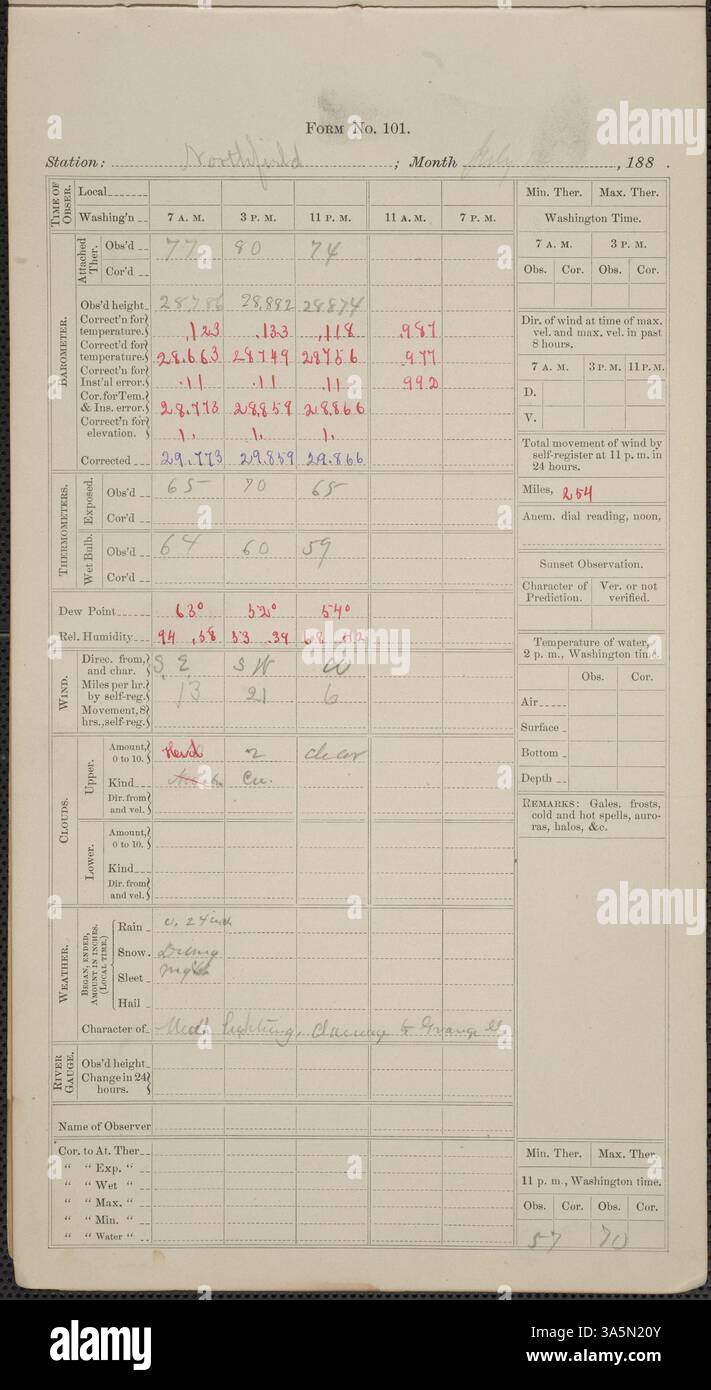 FORM No. 101.
Station: Northfield ; Month July , 188 .
TIME OF OBSER.
Local
Washing'n 7 A. M. 3 P. M. 11 P. M. 11 A. M. 7 P. M.
BAROMETER.
Attached Ther.
Obs'd 77 80 74
Cor'd
Obs'd height 28.786 28.882 28874
Correct'n for temperature. .123 .133 .118 .987
Correct'd for temperature. 28.663 28749 28756 .977
Correct'n for Inst'al error. .11 .11 .11 992
Cor. for Tem. & Ins. error. 28.773 28.859 28.866
Correct'n for elevation. 1. 1. 1.
Corrected 29.773 29.859 29.866
THERMOMETERS.
Exposed.
Obs'd 65 70 65
Cor'd
Wet Bulb.
Obs'd 64 60 59
Cor'd
Dew Point 63° 52° 54°
Rel. Humidity 94 .58 53 .39 68
WIND.
Direc. from, and char. S. E. S W W
Miles per hr. by self-reg. 13 21 6
Movement, 8 hrs., self-reg.
CLOUDS.
Upper.
Amount, 0 to 10. 2 clear
Kind Cu.
Dir. from and vel.
Lower.
Amount, 0 to 10.
Kind
Dir. from and vel.
WEATHER.
BEGAN, ENDED, AMOUNT IN INCHES. (LOCAL TIME.)
Rain 0.24 inch
Snow. During
Sleet night
Hail
Character of lightning, damage to
RIVER GAUGE.
Obs'd height
Change in 24 hours.
Name of Observer
Cor. to At. Ther
" " Exp. "
" " Wet "
" " Max. "
" " Min. "
" " Water "
Min. Ther. Max. Ther.
Washington Time.
7 A. M. 3 P. M.
Obs. Cor. Obs. Cor.
Dir. of wind at time of max. vel. and max. vel. in past 8 hours.
7 A. M. 3 P.M. 11 P.M.
D.
V.
Total movement of wind by self-register at 11 p. m. in 24 hours.
Miles, 254
Anem. dial reading, noon,
Sunset Observation.
Character of Prediction. Ver. or not verified.
Temperature of water, 2 p. m., Washington time.
Obs. Cor.
Air
Surface
Bottom
Depth
REMARKS: Gales, frosts, cold and hot spells, auroras, halos, &c.
Min. Ther. Max. Ther.
11 p. m., Washington time.
Obs. Cor. Obs. Cor.
57 70
alamy
Image ID: 3A5N20Y
www.alamy.com